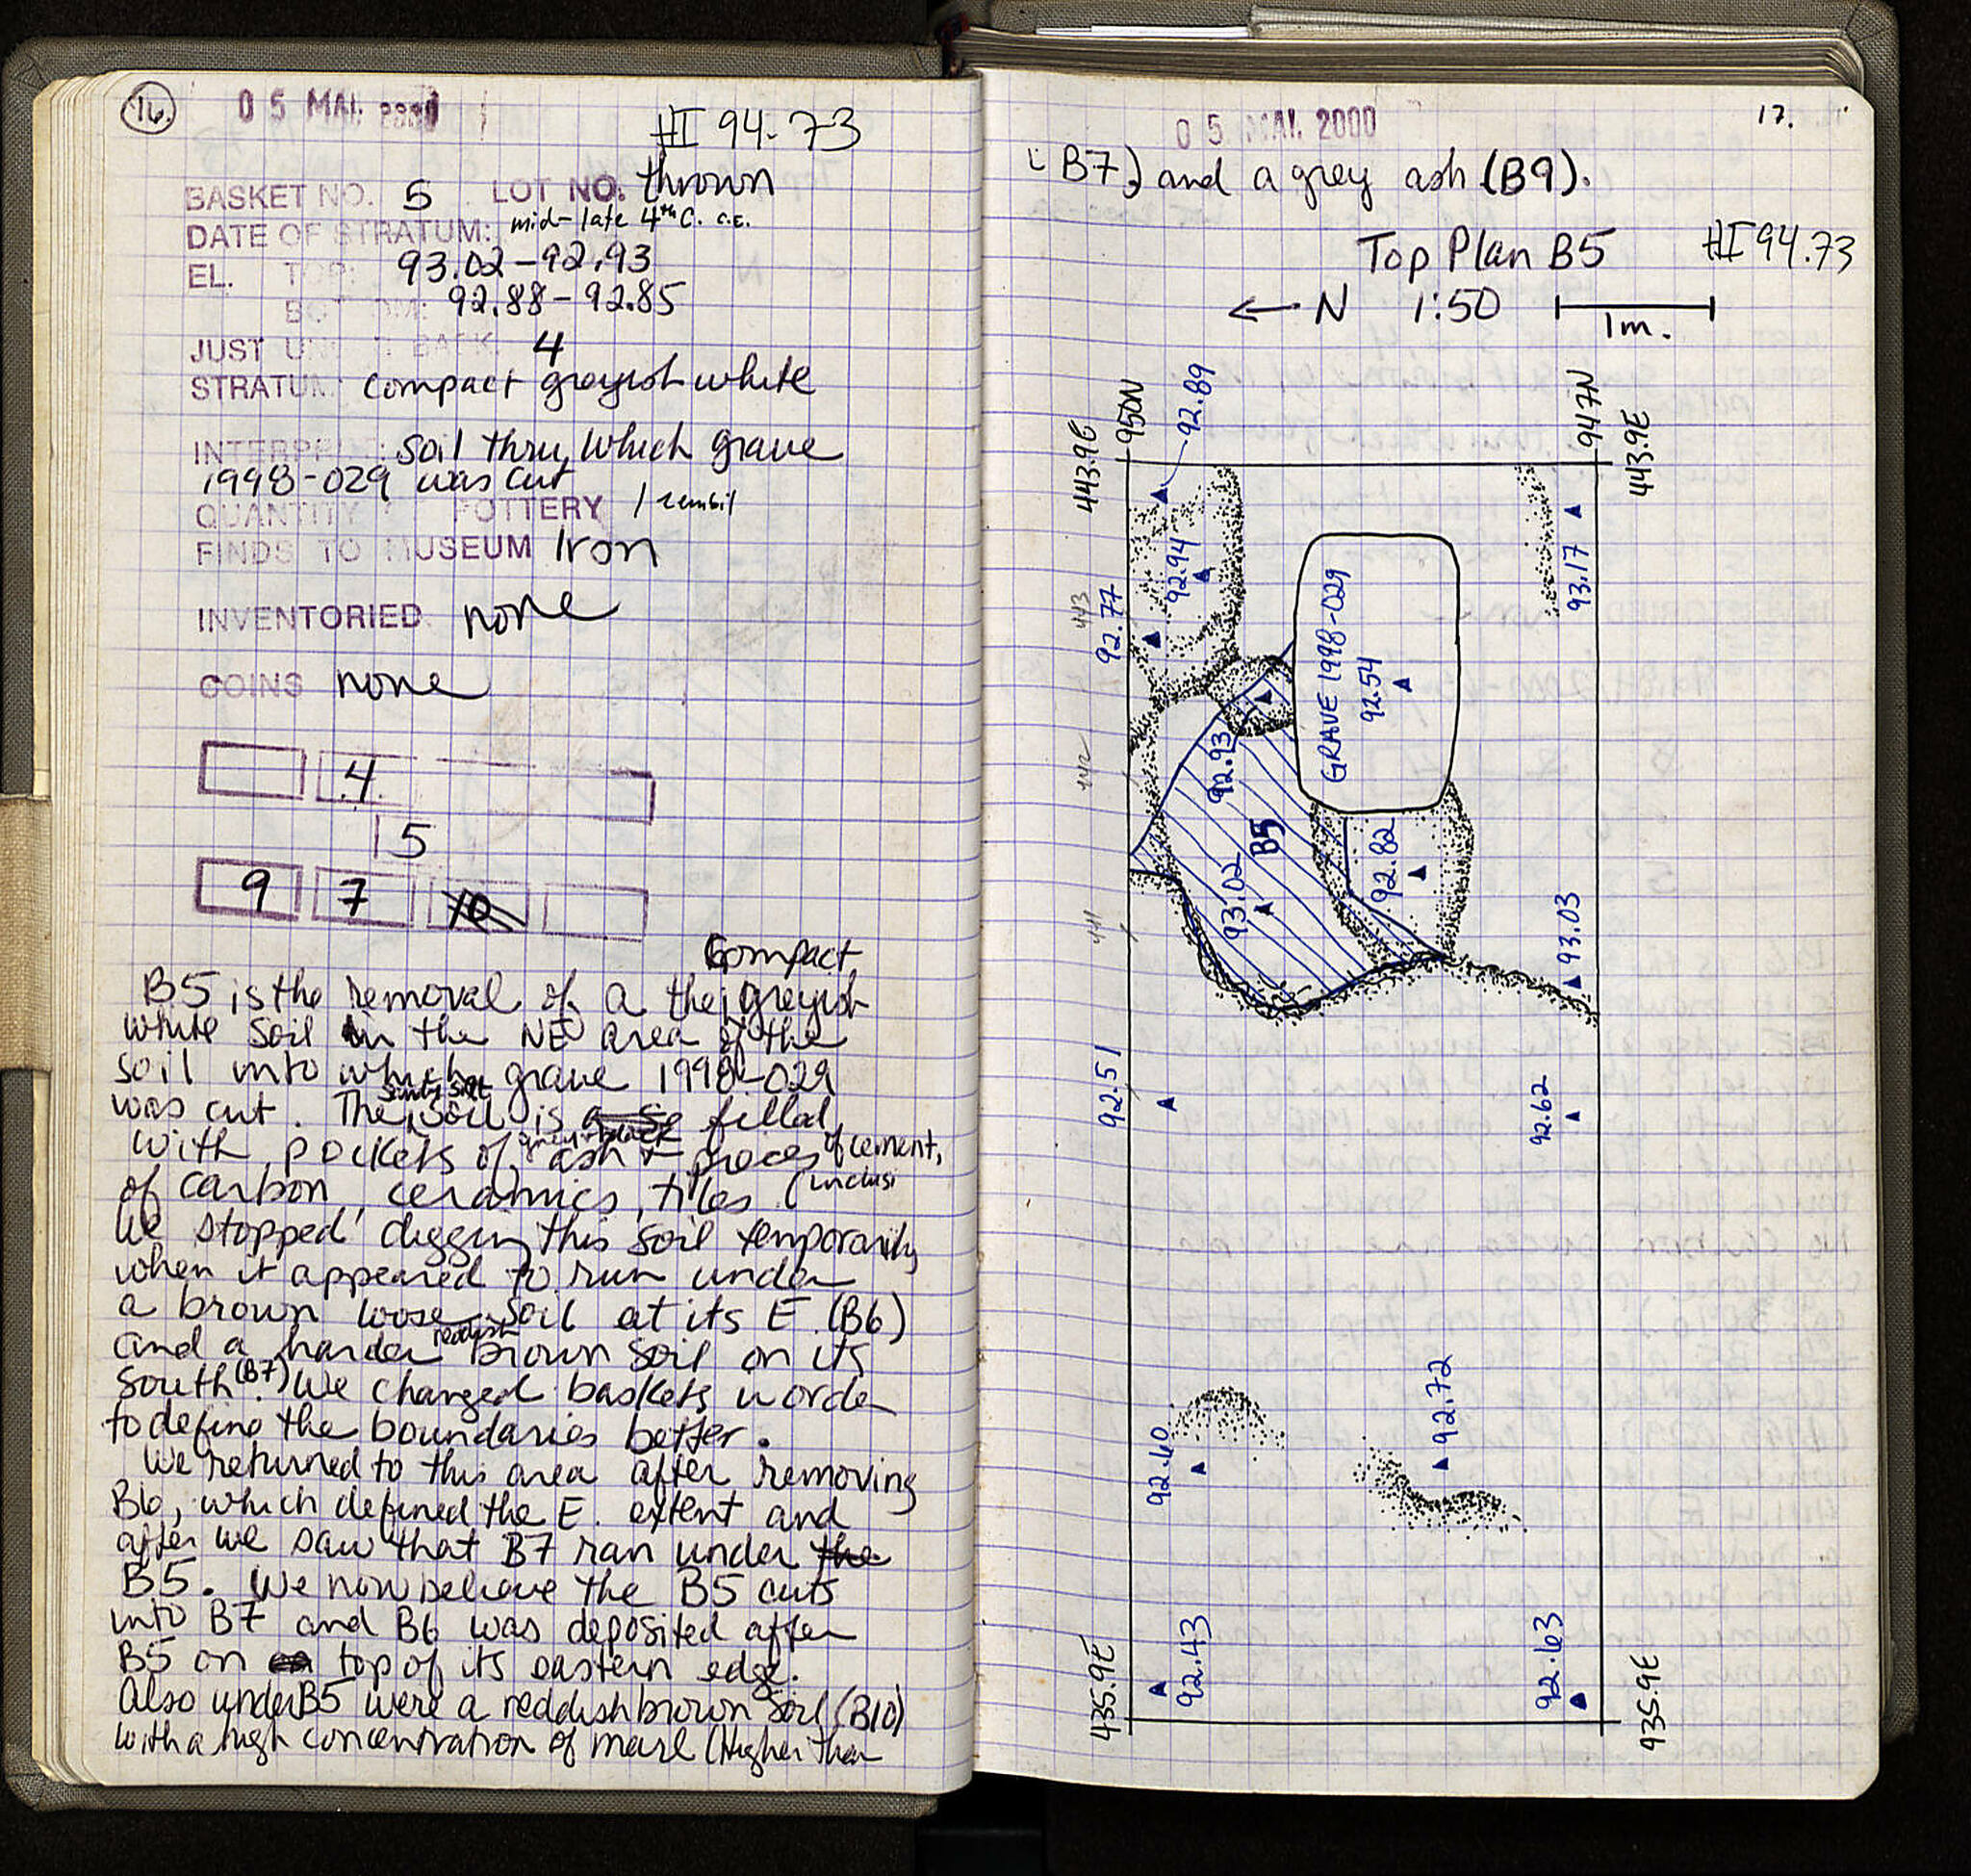 16.
05 MAI 2000
HI 94.73
BASKET NO. 5 LOT NO. thrown
DATE OF STRATUM: mid-late 4th C. C.E.
EL. TOP: 93.02-92.93
BOTTOM: 92.88-92.85
JUST UNDER BASK. 4
STRATUM: compact greyish white
INTERPRET: soil thru which grave
1998-029 was cut
QUANTITY POTTERY 1 zembil
FINDS TO MUSEUM Iron
INVENTORIED none
COINS none
4
5
9 7 10
Compact
B5 is the removal of a the greyish
white soil in the NE area of the
soil into which grave 1998-029
sandy silt
was cut. The soil is a so filled
grey + black
with pockets of ash + pieces of cement,
of carbon, ceramics, tiles (inclusi
We stopped digging this soil temporarily
when it appeared to run under
a brown loose soil at its E (B6)
reddish
and a harder brown soil on its
South (B7). We changed baskets in order
to define the boundaries better.
We returned to this area after removing
B6, which defined the E. extent and
after we saw that B7 ran under the
B5. We now believe the B5 cuts
into B7 and B6 was deposited after
B5 on top of its eastern edge.
Also under B5 were a reddish brown soil (B10)
with a high concentration of marl (Higher than
05 MAI 2000
17.
(B7) and a grey ash (B9).
Top Plan B5 HI 94.73
← N 1:50 1m.
443.9E
950N
92.89
947N
443.9E
92.94
93.17
443
92.77
GRAVE 1998-029
92.54
442
92.93
B5
93.02
92.82
441
93.03
92.51
92.62
92.60
92.72
92.43
92.63
435.9E
935.9E